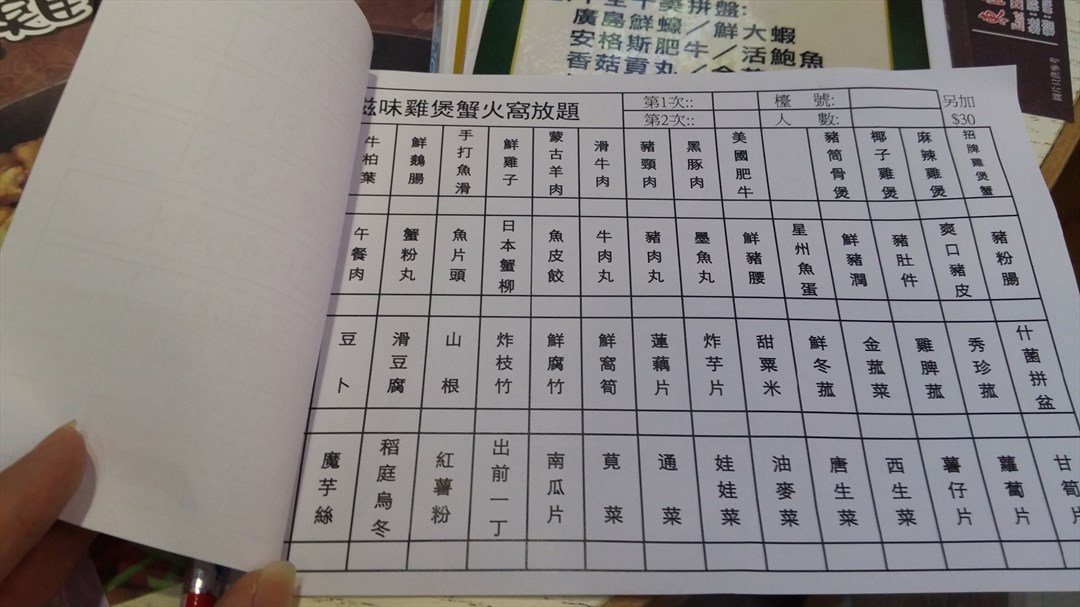 廣島鮮蠔／鮮大蝦
安格斯肥牛／活鮑魚
香菇貢丸
圖片只供參考
滋味雞煲蟹火窩放題
第1次::
檯 號:
另加
第2次::
人 數:
$30
牛柏葉
鮮鵝腸
手打魚滑
鮮雞子
蒙古羊肉
滑牛肉
豬頸肉
黑豚肉
美國肥牛
豬筒骨煲
椰子雞煲
麻辣雞煲
招牌雞煲蟹
午餐肉
蟹粉丸
魚片頭
日本蟹柳
魚皮餃
牛肉丸
豬肉丸
墨魚丸
鮮豬腰
星州魚蛋
鮮豬潤
豬肚件
爽口豬皮
豬粉腸
豆卜
滑豆腐
山根
炸枝竹
鮮腐竹
鮮窩筍
蓮藕片
炸芋片
甜粟米
鮮冬菰
金菰菜
雞脾菰
秀珍菰
什菌拼盆
魔芋絲
稻庭烏冬
紅薯粉
出前一丁
南瓜片
莧菜
通菜
娃娃菜
油麥菜
唐生菜
西生菜
薯仔片
蘿蔔片
甘筍片